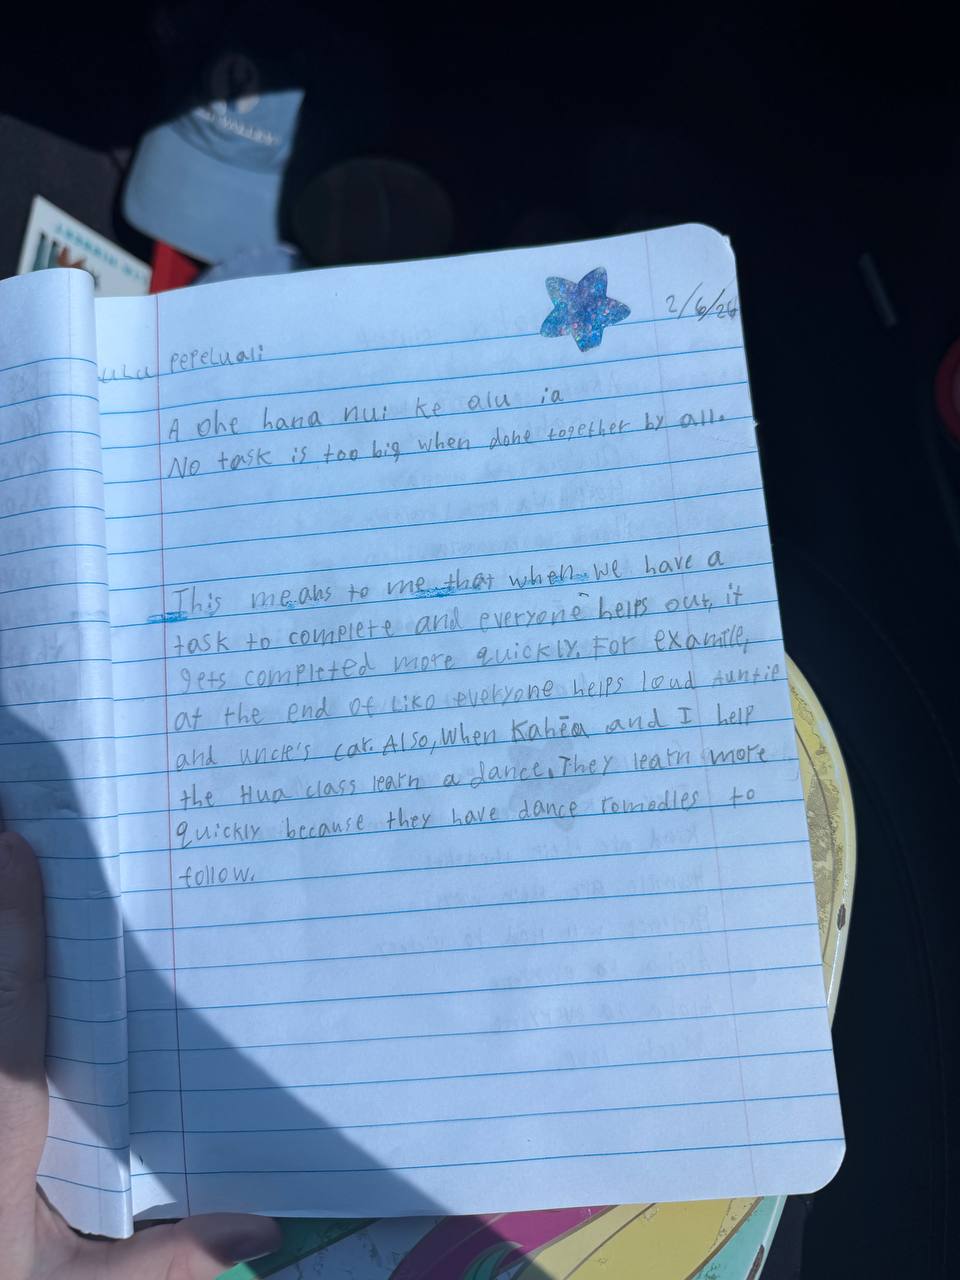 2/6/26
ulu Pepeluali
A ohe hana nui ke alu ia
No task is too big when done together by all.
This means to me that when we have a
task to complete and everyone helps out, it
gets completed more quickly. For example,
at the end of Liko everyone helps load Auntie
and uncle's car. Also, when Kahēa and I help
the Hua class learn a dance. They learn more
quickly because they have dance romodles to
follow.